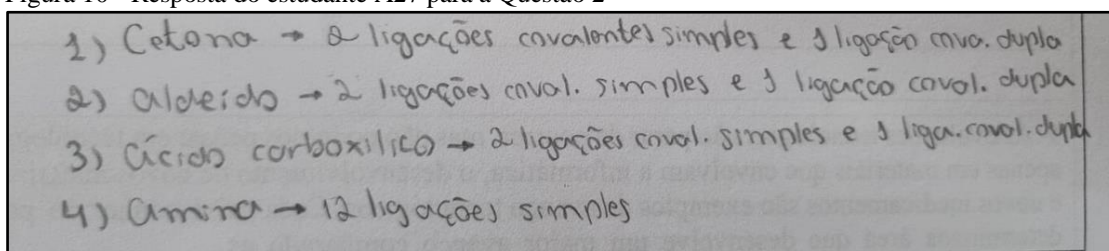 Figura 10 - Resposta do estudante A27 para a Questão 2
1) Cetona → 2 ligações covalentes simples e 1 ligação cova. dupla
2) aldeído → 2 ligações coval. simples e 1 ligação coval. dupla
3) ácido carboxílico → 2 ligações coval. simples e 1 liga. coval. dupla
4) amina → 12 ligações simples